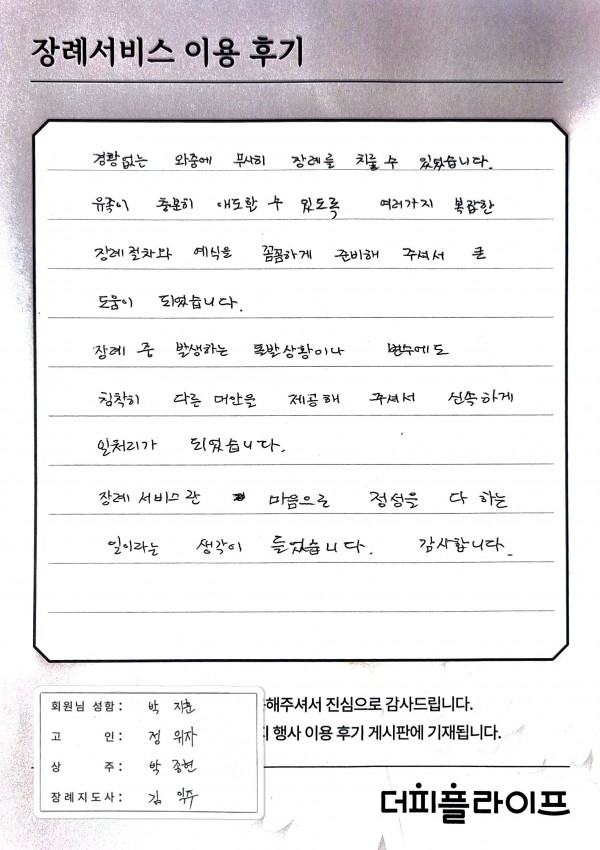 장례서비스 이용 후기
경황없는 와중에 무사히 장례를 치를 수 있었습니다.
유족이 충분히 애도할 수 있도록 여러가지 복잡한
장례절차와 예식을 꼼꼼하게 준비해 주셔서 큰
도움이 되었습니다.
장례 중 발생하는 돌발상황이나 변수에도
침착히 다른 대안을 제공해 주셔서 신속하게
일처리가 되었습니다.
장례 서비스란 마음으로 정성을 다 하는
일이라는 생각이 들었습니다. 감사합니다.
해주셔서 진심으로 감사드립니다.
행사 이용 후기 게시판에 기재됩니다.
회원님 성함: 박 지훈
고 인: 정 위자
상 주: 박 종현
장례지도사: 김
더피플라이프